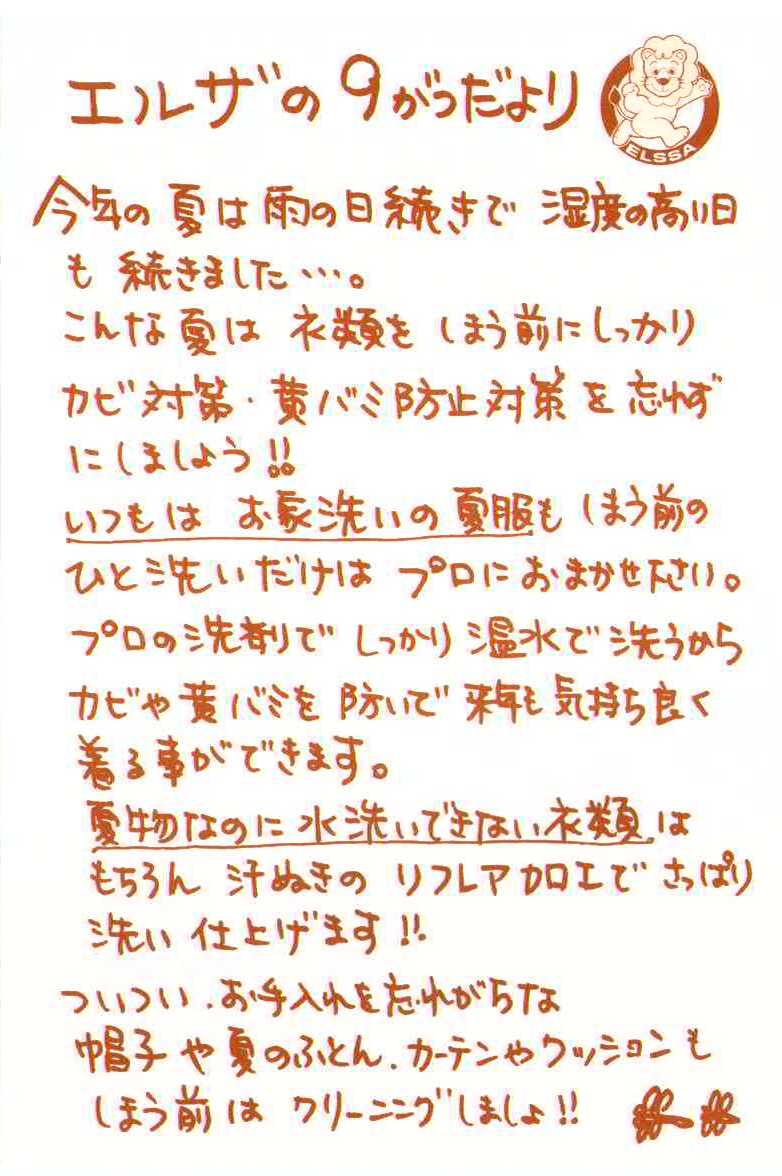 エルザの9がつだより
ELSSA
今年の夏は雨の日続きで 湿度の高い日
も 続きました…。
こんな夏は 衣類を しまう前にしっかり
カビ対策・黄バミ防止対策を忘れず
にしましょう!!
いつもは お家洗いの夏服も しまう前の
ひと洗いだけは プロにおまかせ下さい。
プロの洗剤で しっかり 温水で洗うから
カビや黄バミを 防いで 来年も気持ち良く
着る事ができます。
夏物なのに水洗いできない衣類は
もちろん 汗ぬきの リフレア加工で さっぱり
洗い 仕上げます!!
ついつい、お手入れを忘れがちな
帽子や夏のふとん、カーテンやクッションも
しまう前は クリーニングしましょ!!